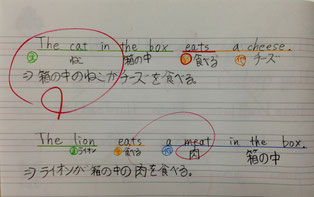 The cat in the box eats a cheese.
ねこ 箱の中 食べる チーズ
⇒ 箱の中のねこがチーズを食べる。
The lion eats a meat in the box.
ライオン 食べる 肉 箱の中
⇒ ライオンが箱の中の肉を食べる。